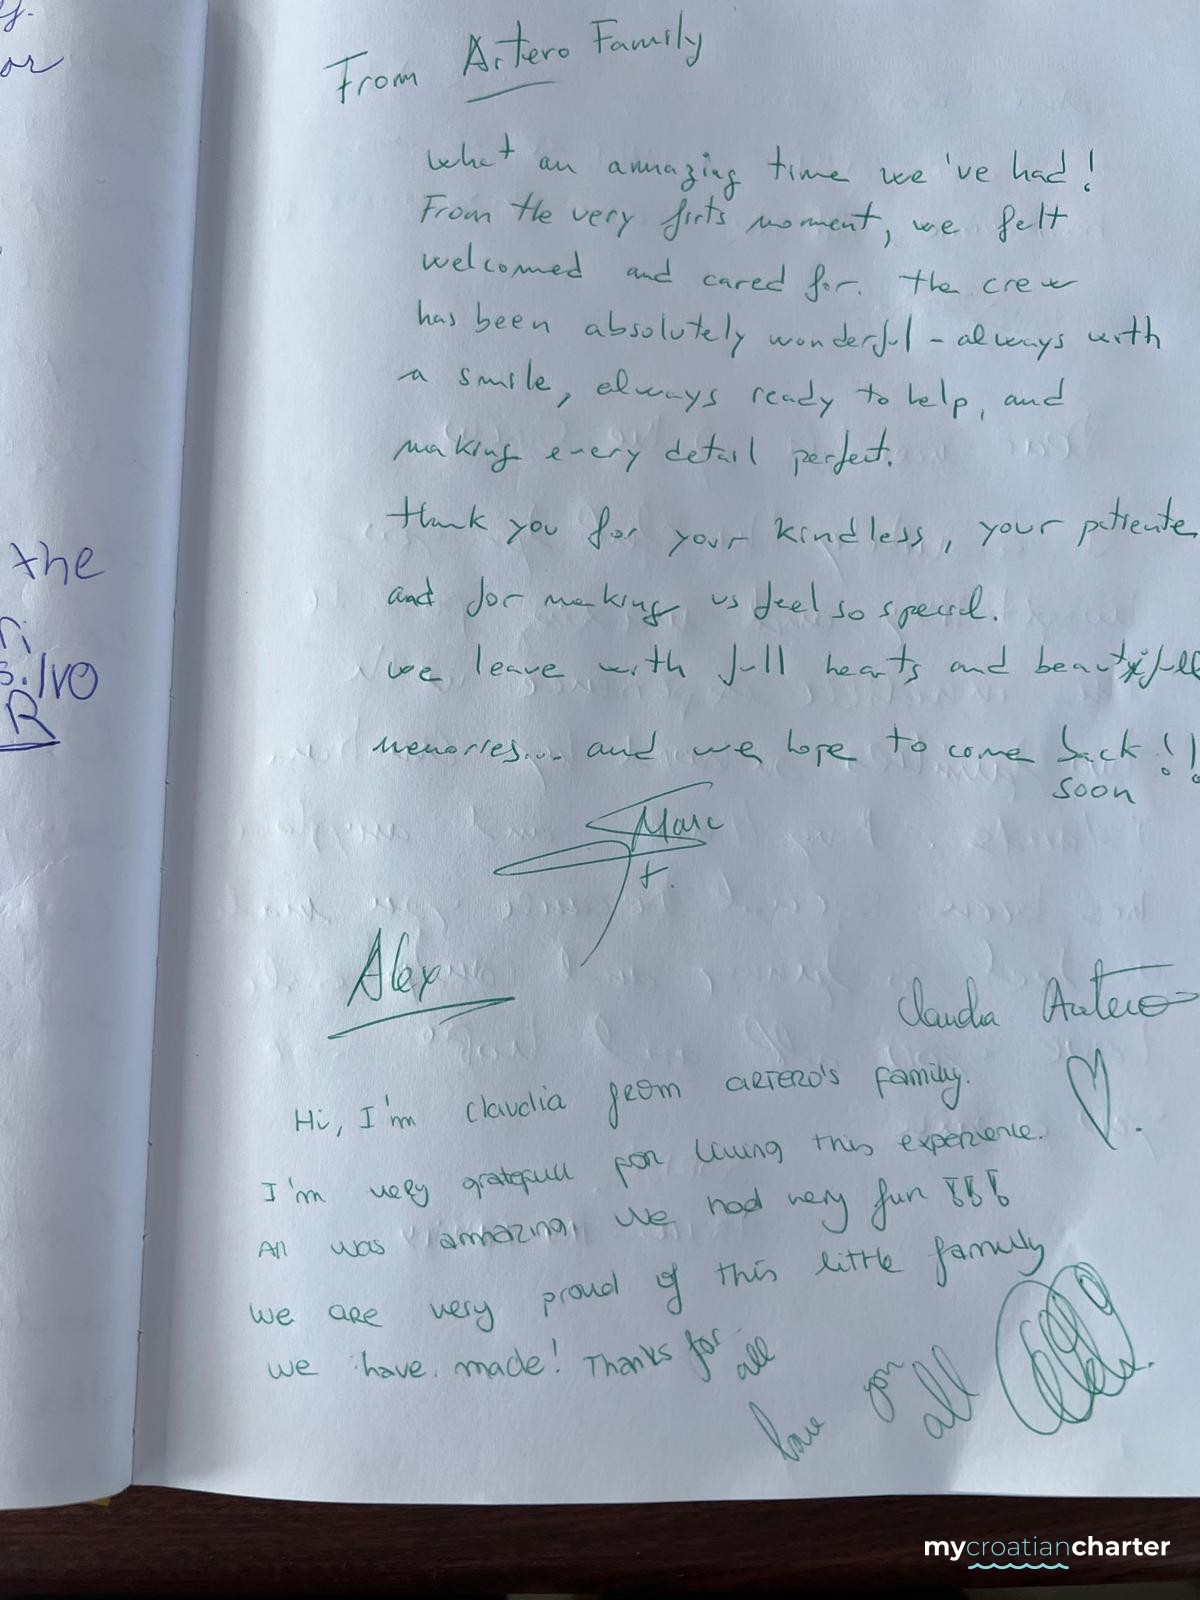 y.
or
the
ri
s. Ivo
R
From Artero Family
What an amnazing time we've had!
From the very firts moment, we felt
welcomed and cared for. The crew
has been absolutely wonderful - always with
a smile, always ready to help, and
making every detail perfect.
Thank you for your kindless, your patiente
and for making us feel so special.
we leave with full hearts and beautifull
memories... and we hope to come back!!
soon
Marc
Alex
Claudia Artero
Hi, I'm Claudia from ARTERO'S family.
I'm very gratefull for living this experience.
All was amnazing, we had very fun !!!
we are very proud of this little family
we have made! Thanks for all
love you all
mycroatiancharter